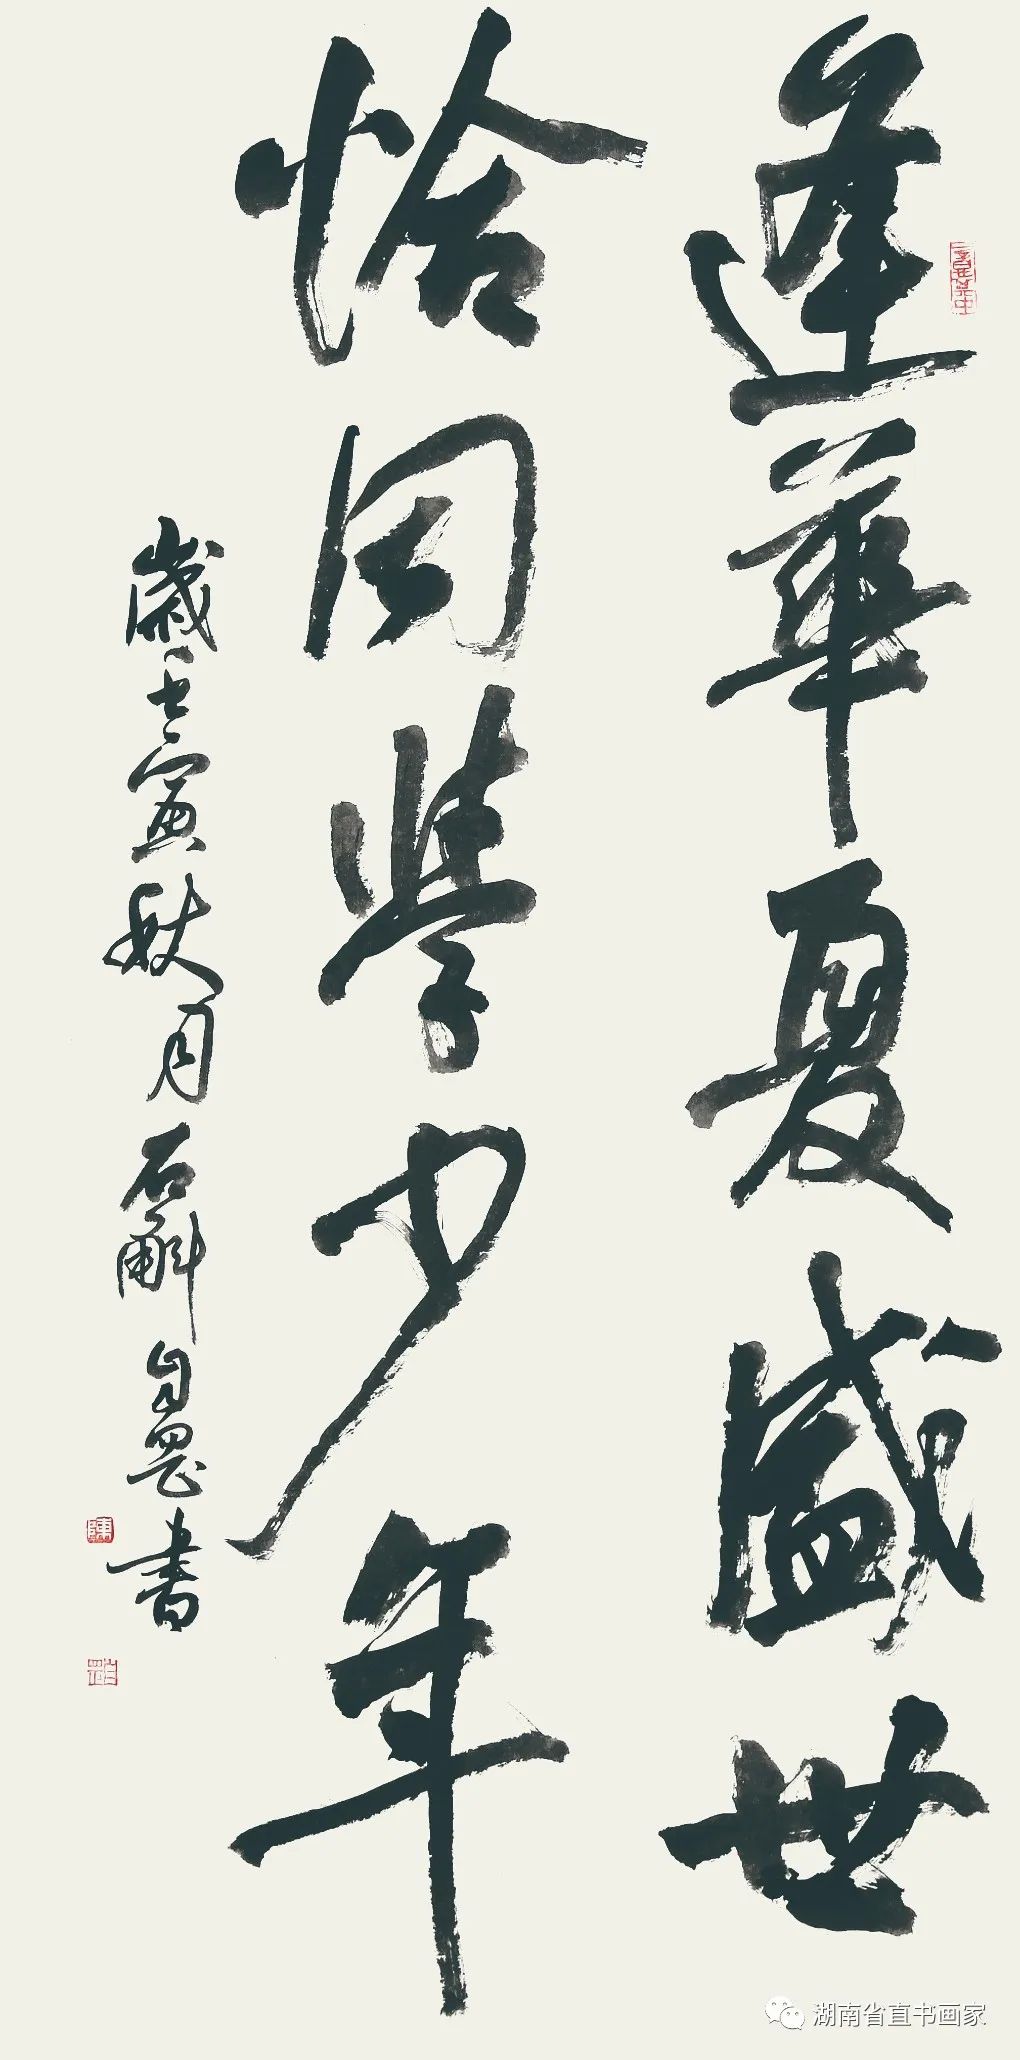 逢華夏盛世
恰同學少年
歲壬寅秋月石斛自罡書
陳
湖南省直书画家